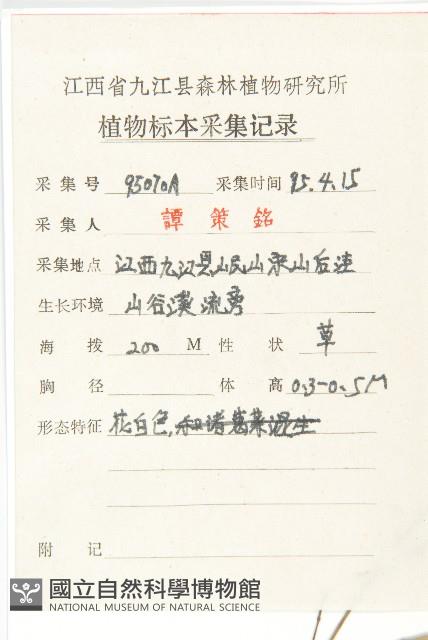 江西省九江县森林植物研究所
植物标本采集记录
采集号 95070A 采集时间 95.4.15
采集人 譚策銘
采集地点 江西九江县岷山来山后洼
生长环境 山谷溪流旁
海拨 200 M 性状 草
胸径 体高 0.3-0.5M
形态特征 花白色,和诸葛菜混生
附记
國立自然科學博物館
NATIONAL MUSEUM OF NATURAL SCIENCE